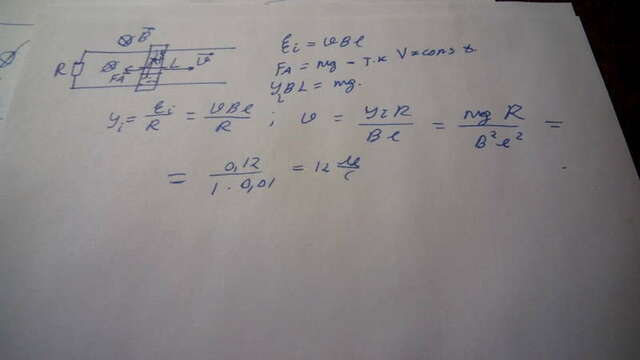 B
R
FA
L
v
Ɛi = vBl
FA = mg - т.к V=const
YiBL = mg.
Yi = Ɛi/R = vBl/R ; v = YiR/Bl = mg R/B²l² =
= 0,12/1·0,01 = 12 м/с